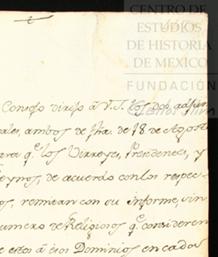 CENTRO DE
ESTUDIOS
DE HISTORIA
DE MEXICO
FUNDACIÓN
Consejo dirijo à V.S. los dos
ambos de fha de 18 de Agosto
q.e los Virreyes, Presidentes, y
de acuerdo con los respec-
remitan con su informe,
de Religiosos q.e consideren
estos à esos Dominios en cada